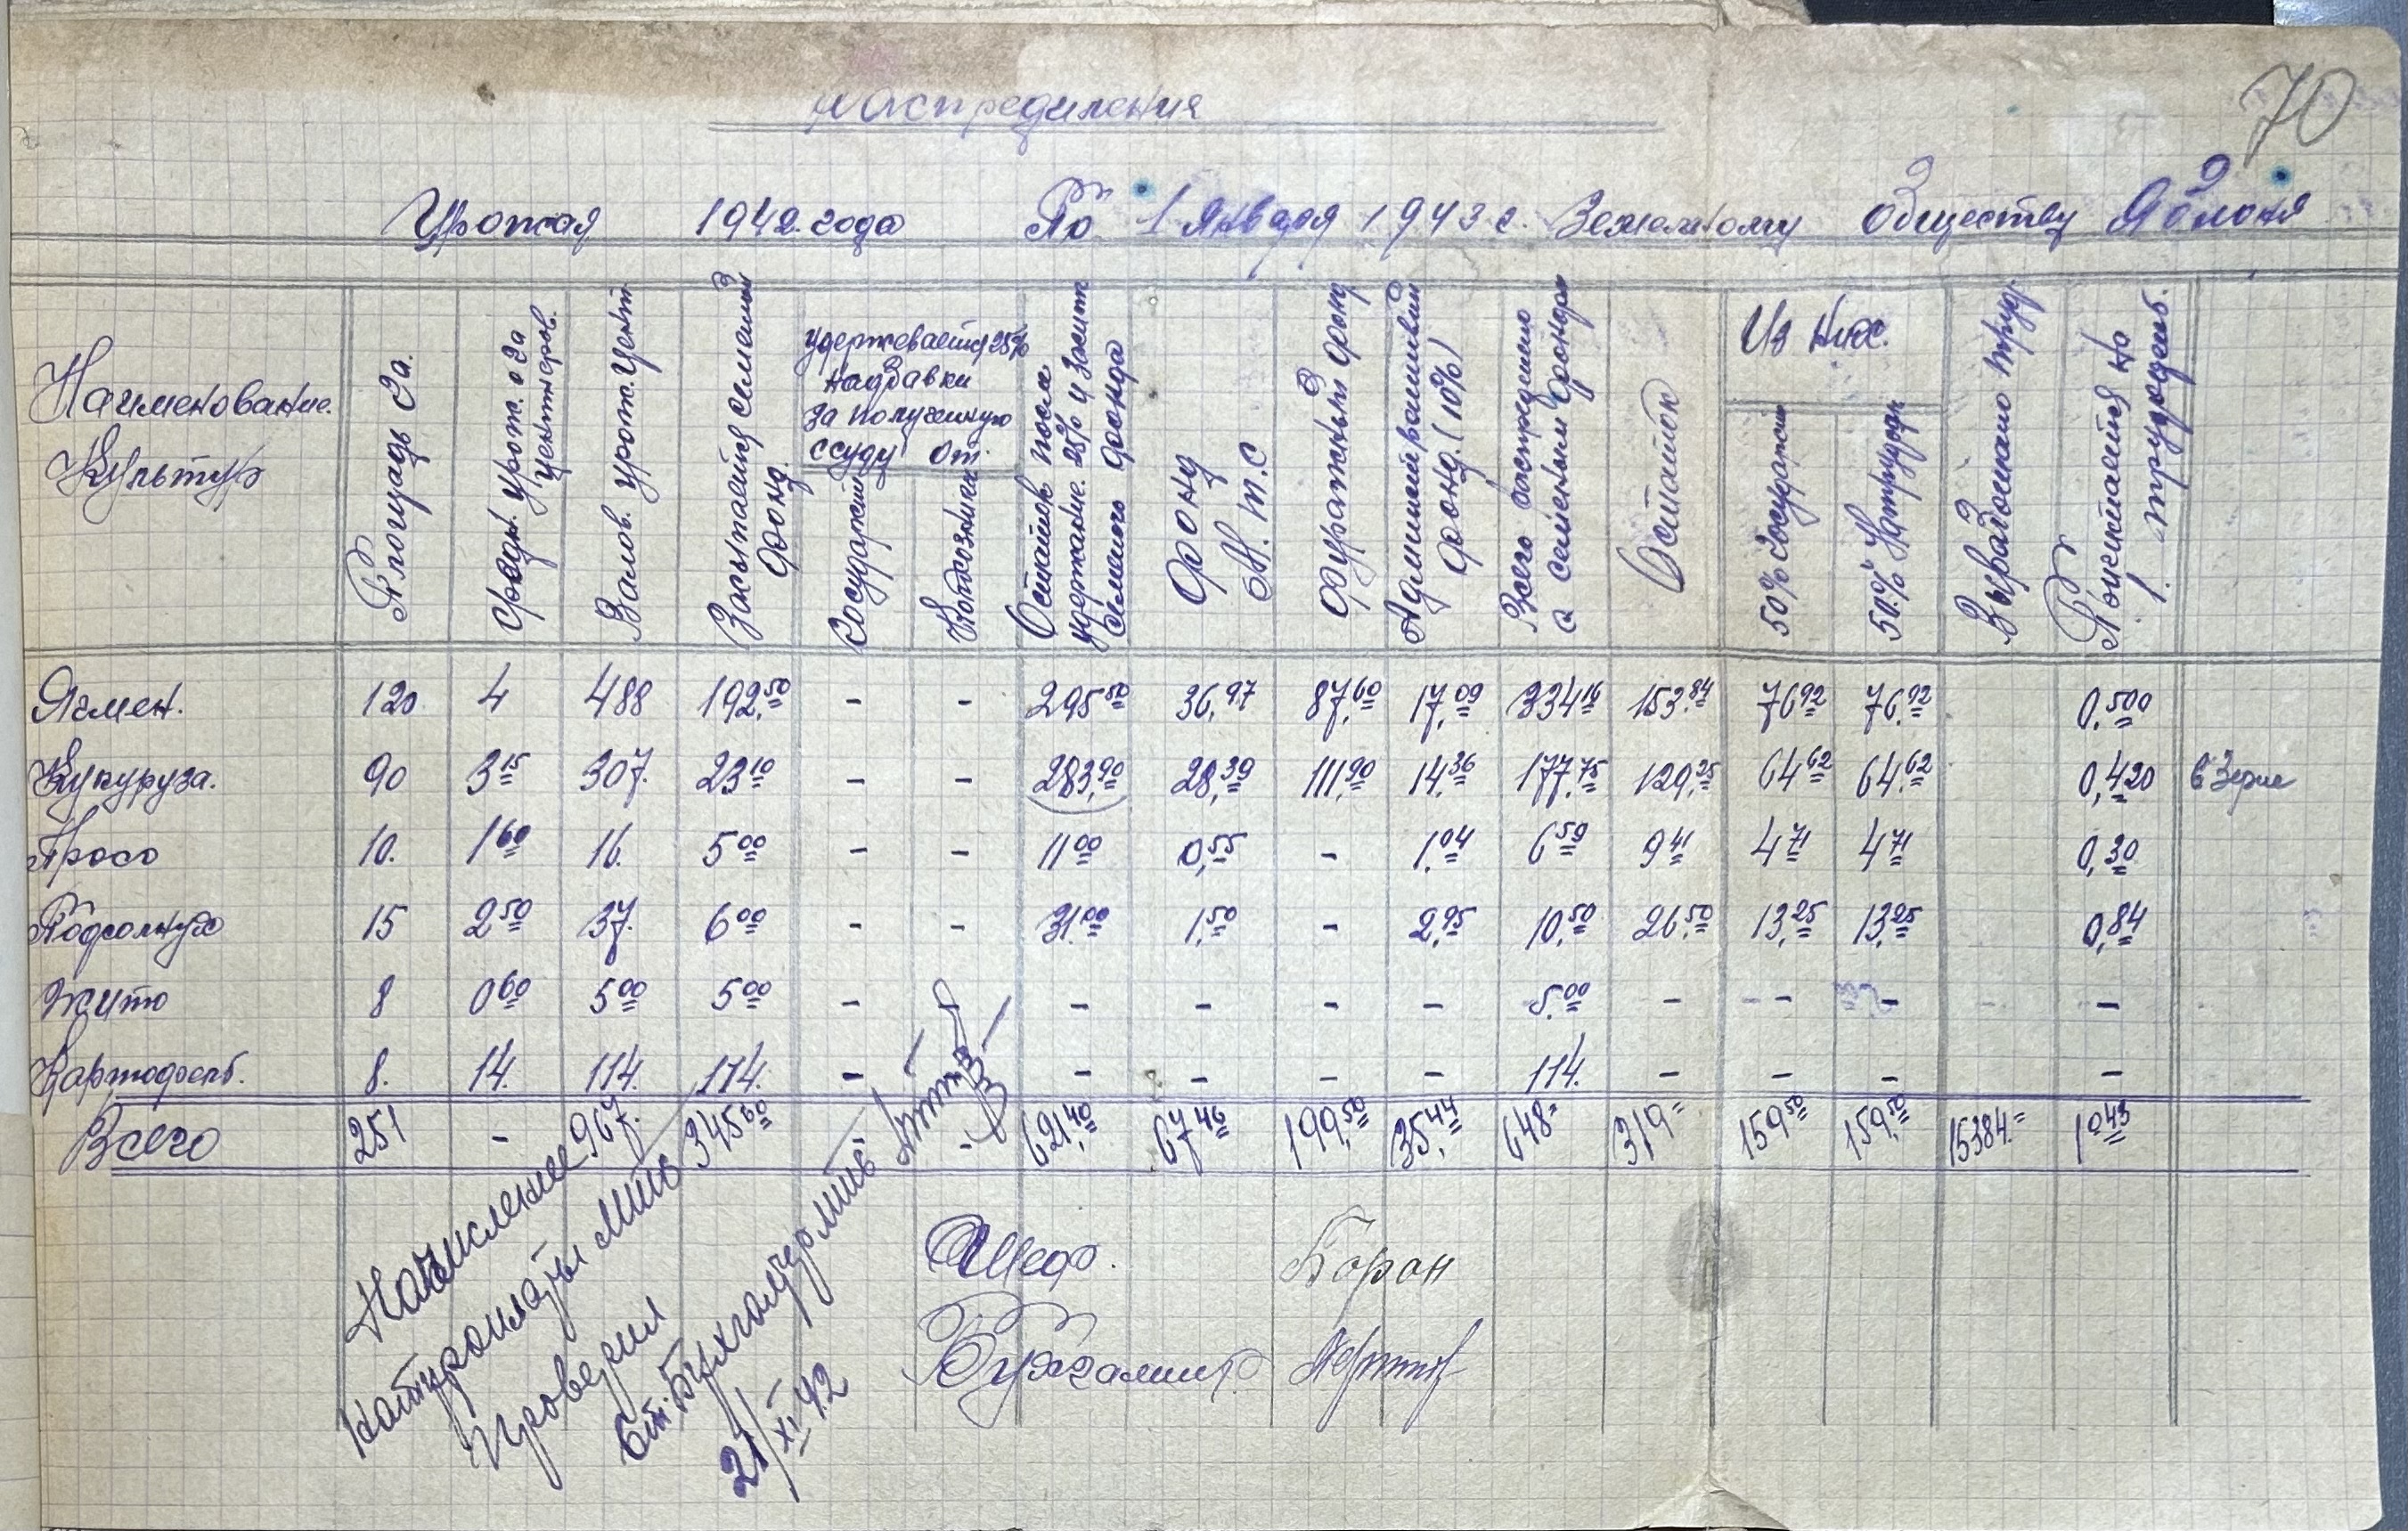 70
Распределения
Урожая 1942 года По 1 Января 1943 г. Земельному обществу Яблоня
Наименование Культур
Площадь Га.
Средн. урож. с га центнеров.
Валов. урож. Цент
Засыпается семеной фонд.
удержевается 25% надбавки за полученную ссуду от.
Государсти
Остаток после удержание 25% и засип семеного фонда
Фонд М.Т.С
Фуражный фонд
Фонд (10%)
Всего распределено с семеным фондом
Остаток
Из них.
50% Государсти
50%
Выработанно труд.
Почитается на 1. трудодень.
Ячмен. 120 4 488 192,50 - - 295 50 36,97 87,60 17,09 334 16 153,84 76 92 76,92 0,500
Кукуруза. 90 3 15 307. 23 10 - - 283,90 28,39 111,90 14,36 177,75 129,25 64 62 64,62 0,420 в Зерне
Просо 10. 1 60 16. 5 00 - - 11 00 0,55 - 1,04 6 59 9 41 4 71 4 71 0,30
Подсолнух 15 2 50 37. 6 00 - - 31,00 1,50 - 2,95 10,50 26,50 13,25 13,25 0,84
Жито 8 0 60 5 00 5 00 - - - - - - 5,00 - - - -
Картофель. 8. 14. 114. 114. - - - - - 114. - - - -
Всего 251 - 967. 345 60 - 621,40 67 46 199,50 35,44 648= 319= 159 50 159,50 15384.= 1 043
Начисление
натуроплаты МТС
Проверил
Ст. Бухгалтер МТС
21/XI 42
Шеф. Боран
Бухгалтер